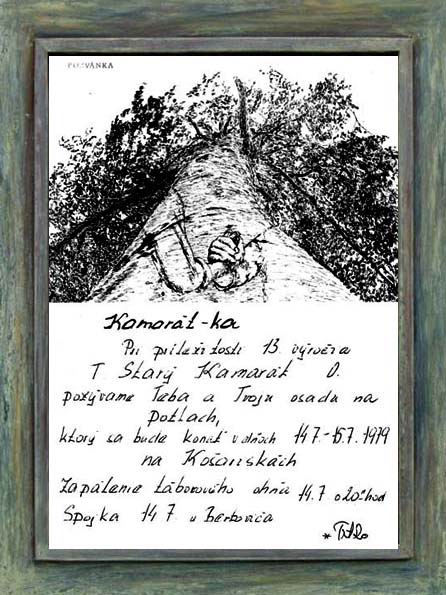 POZVÁNKA
Kamarát-ka
Pri príležitosti 13. výročia
T. Starý Kamarát O.
pozývame Teba a Tvoju osadu na
Potlach,
ktorý sa bude konať v dňoch 14.7.-15.7.1979
na Košariskách
Zapálenie táborového ohňa 14.7. o 20 hod
Spojka 14.7. u Berkoviča